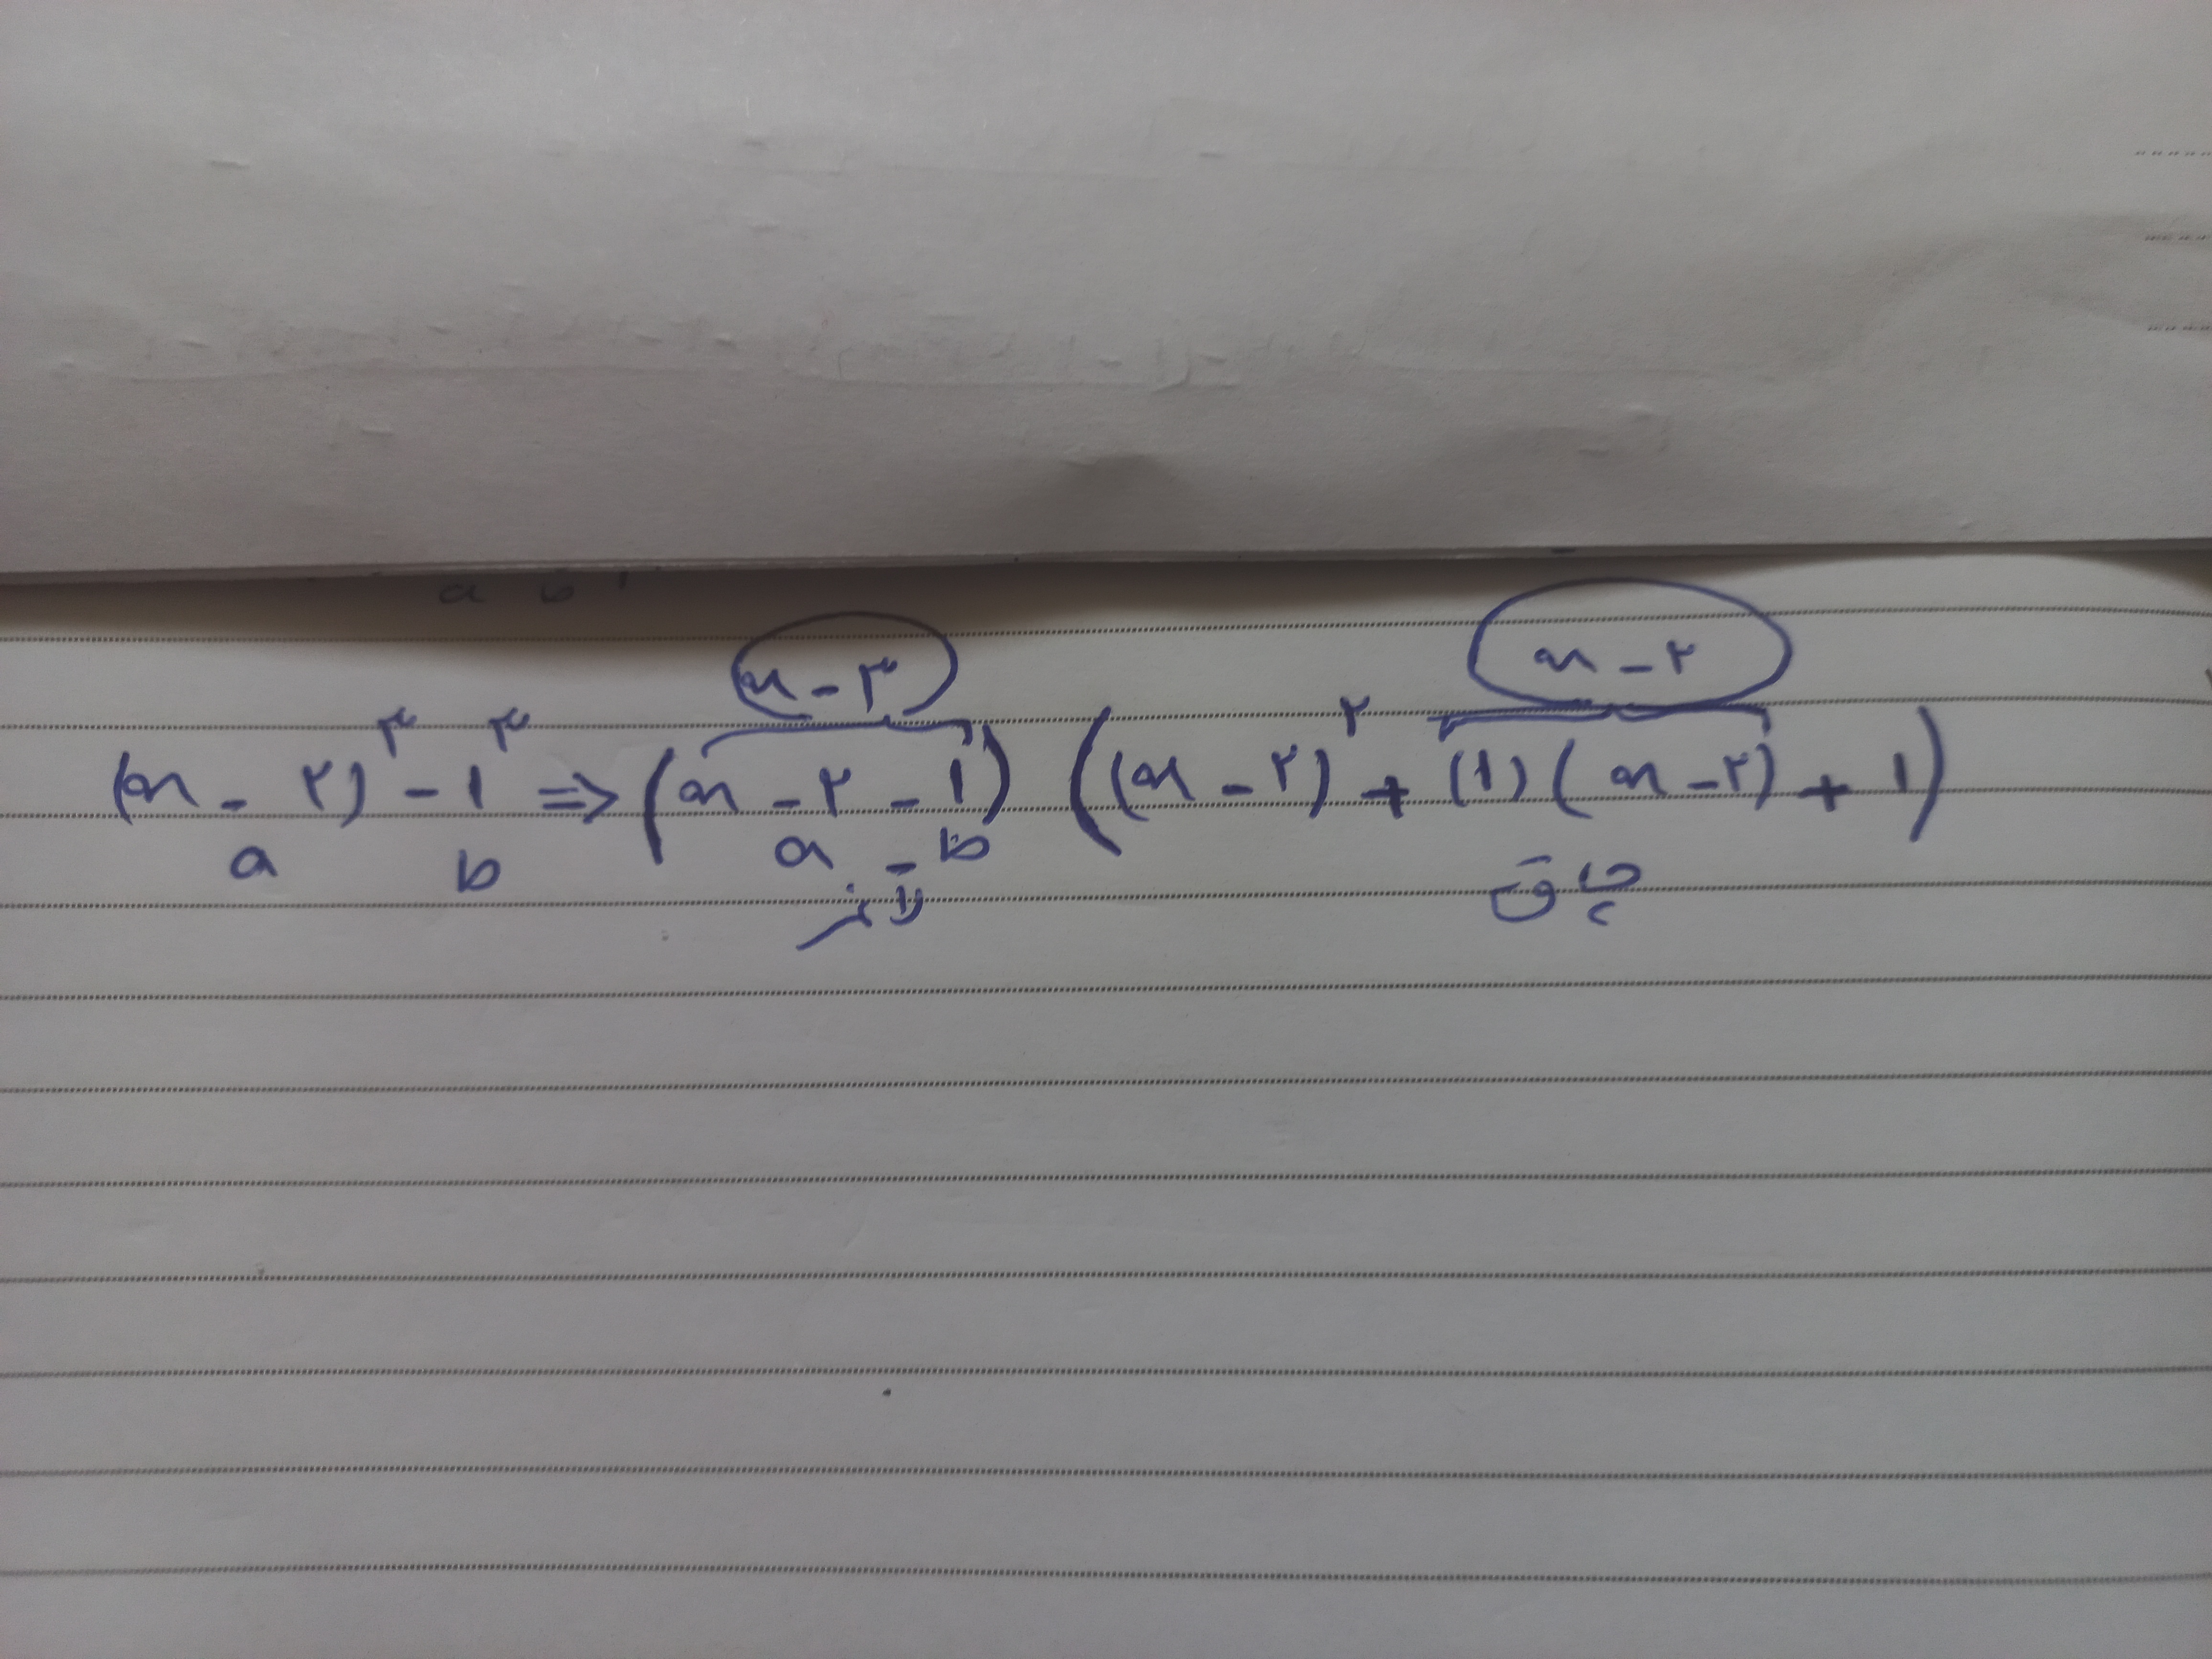 a b
x - ۳ x - ۲
(x - ۲)^۳ - ۱^۳ => (x - ۲ - ۱) ((x - ۲)^۲ + (۱)(x - ۲) + ۱)
a b a - b
لاغر چاق